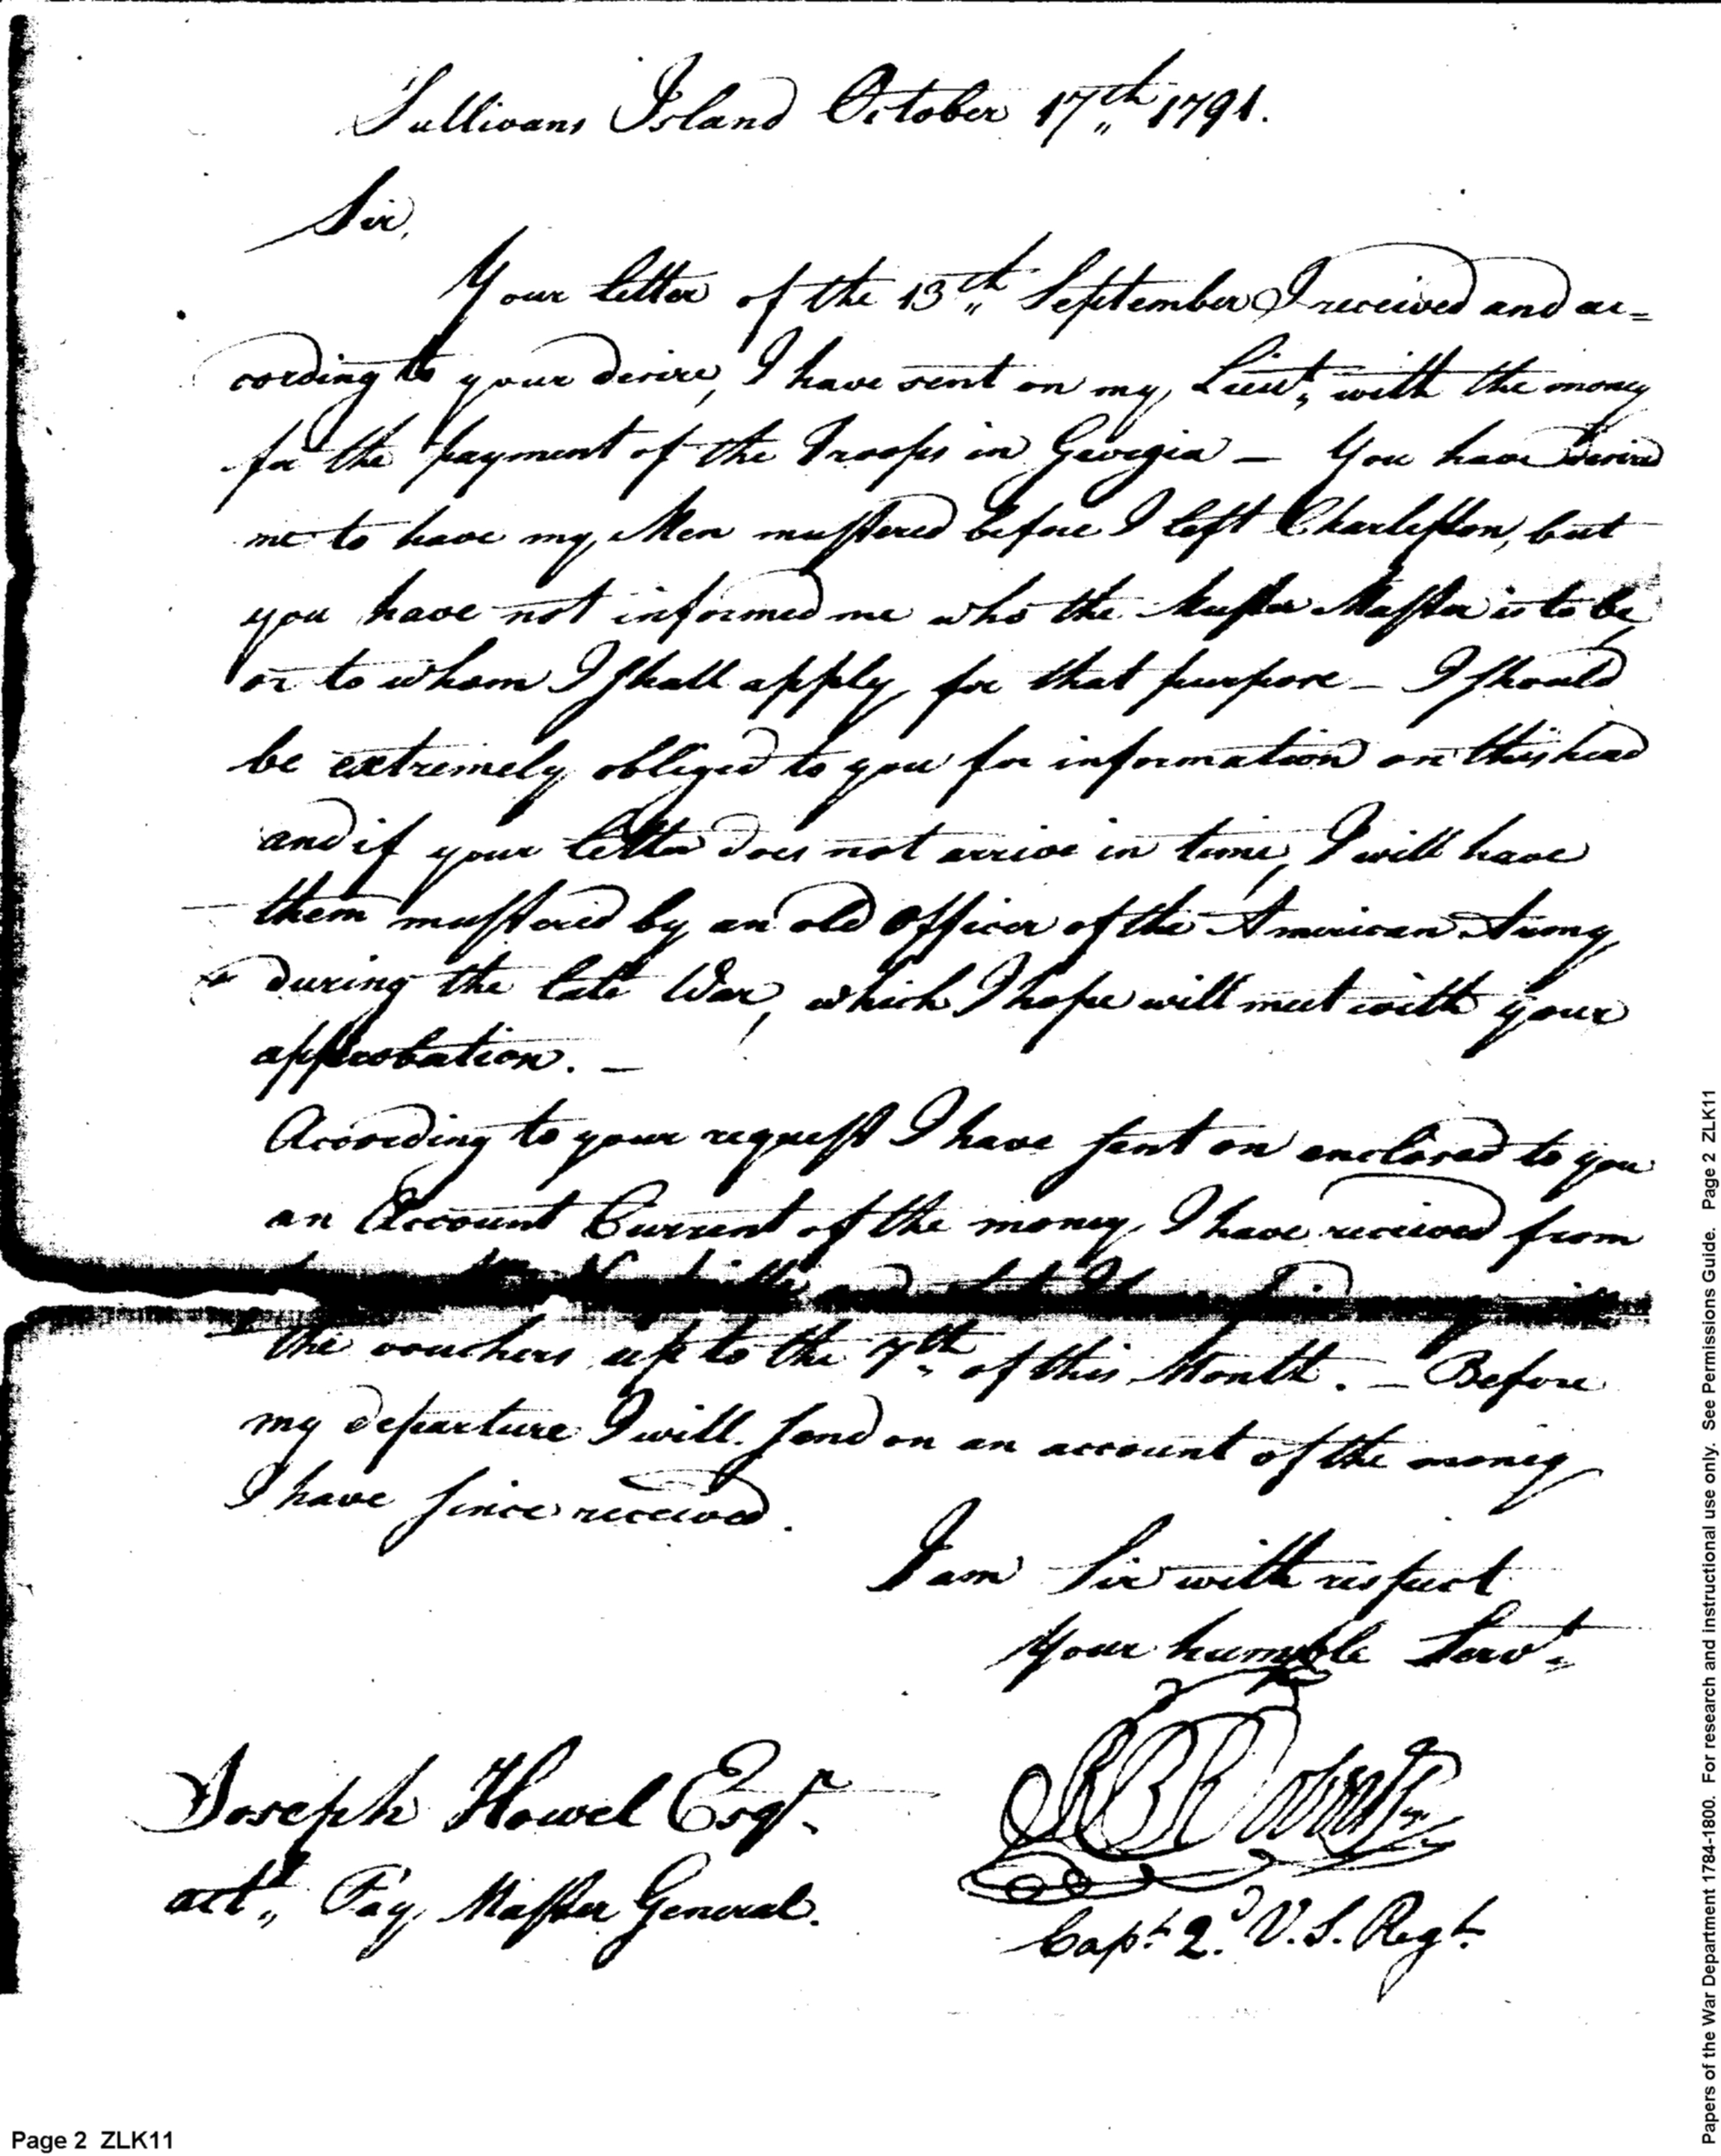 Sullivans Island October 17th 1791.
Sir,
Your letter of the 13th September I received and ac=
cording to your desire, I have sent on my Lieut, with the money
for the payment of the Troops in Georgia — You have desired
me to have my Men mustered before I left Charleston, but
you have not informed me who the Muster Master is to be
or to whom I shall apply for that purpose — I should
be extremely obliged to you for information on this head
and if your letter does not arrive in time, I will have
them mustered by an old Officer of the American Army
during the late War, which I hope will meet with your
approbation. —
According to your request I have sent on enclosed to you
an Account Current of the money I have received from
and what I
the vouchers up to the 7th of this Month. — Before
my departure I will send on an account of the money
I have since received.
I am Sir with respect
Your humble Servt
Joseph Howel Esqr.
R B Roberts
actg Pay Master General.
Capt. 2d U.S. Regt.
Page 2 ZLK11
Papers of the War Department 1784-1800. For research and instructional use only. See Permissions Guide. Page 2 ZLK11